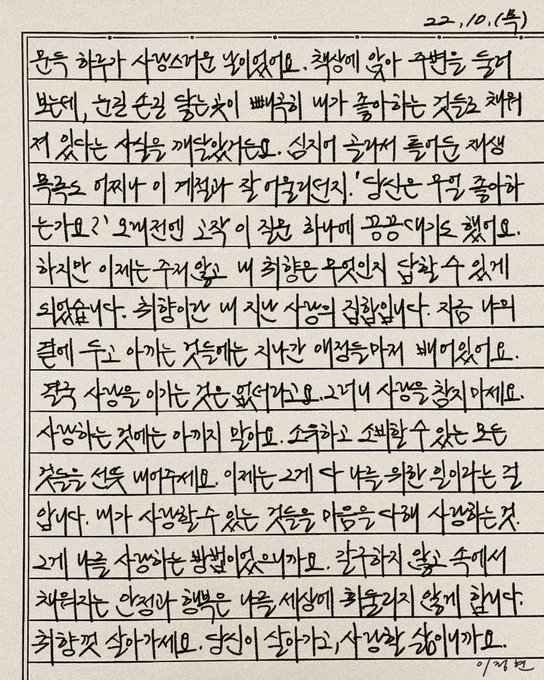 22.10.(목)
문득 하루가 사랑스러운 날이었어요. 책상에 앉아 주변을 둘러
보는데, 눈길 손길 닿는곳이 빼곡히 내가 좋아하는 것들로 채워
져 있다는 사실을 깨달았거든요. 심지어 골라서 틀어둔 재생
목록도 어찌나 이 계절과 잘 어울리던지. '당신은 무얼 좋아하
는가요?' 오래전엔 고작 이 질문 하나에 끙끙대기도 했어요.
하지만 이제는 주저 않고 내 취향은 무엇인지 답할 수 있게
되었습니다. 취향이란 내 지난 사랑의 집합입니다. 지금 나의
곁에 두고 아끼는 것들에는 지나간 애정들마저 배어있어요.
결국 사랑을 이기는 것은 없더라고요. 그러니 사랑을 참지 마세요.
사랑하는 것에는 아끼지 말아요. 소유하고 소비할 수 있는 모든
것들을 선뜻 내어주세요. 이제는 그게 다 나를 위한 일이라는 걸
압니다. 내가 사랑할 수 있는 것들을 마음을 다해 사랑하는 것.
그게 나를 사랑하는 방법이었으니까요. 갈구하지 않고 속에서
채워지는 안정과 행복은 나를 세상에 휘둘리지 않게 합니다.
취향껏 살아가세요. 당신이 살아가고, 사랑할 삶이니까요.
이정현